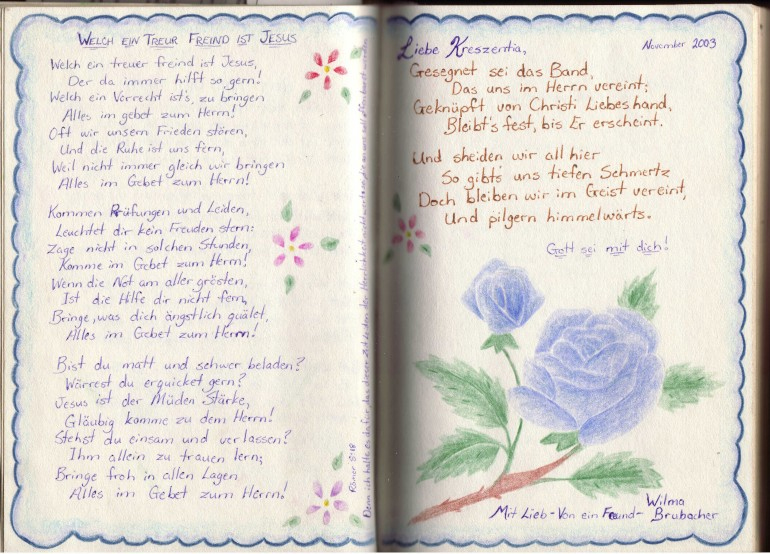 Welch ein Treur Freind ist Jesus
Welch ein treuer freind ist Jesus,
Der da immer hilft so gern!
Welch ein Vorrecht ist's, zu bringen
Alles im gebet zum Herrn!
Oft wir unsern Frieden stören,
Und die Ruhe ist uns fern,
Weil nicht immer gleich wir bringen
Alles im Gebet zum Herrn!
Kommen Prüfungen und Leiden,
Leuchtet dir kein Freuden stern:
Zage nicht in solchen Stunden,
Komme im Gebet zum Herrn!
Wenn die Not am aller grösten,
Ist die Hilfe dir nicht fern,
Bringe, was dich ängstlich quälet,
Alles im Gebet zum Herrn!
Bist du matt und schwer beladen?
Wärrest du erquicket gern?
Jesus ist der Müden Stärke,
Gläubig komme zu dem Herrn!
Stehst du einsam und verlassen?
Ihm allein zu trauen lern;
Bringe froh in allen Lagen
Alles im Gebet zum Herrn!
Römer 8:18
Denn ich halte es dafür das dieser Zeit Leiden der Herrlichkeit nicht wert sei, die an uns soll offenbaret werden
Liebe Kreszentia,
November 2003
Gesegnet sei das Band,
Das uns im Herrn vereint;
Geknüpft von Christi Liebeshand,
Bleibt's fest, bis Er erscheint.
Und sheiden wir all hier
So gibt's uns tiefen Schmertz
Doch bleiben wir im Geist vereint,
Und pilgern himmelwärts.
Gott sei mit dich!
Mit Lieb - Von ein Freund - Wilma
Brubacher